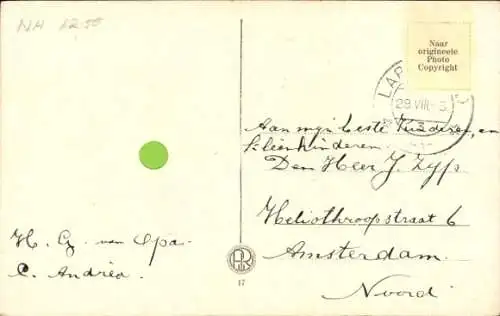 NH 12.50
Naar
origineele
Photo
Copyright
LAR
29.VIII-3.
Aan mijn beste Kinderen, en
kleinkinderen.
Den Heer J. Zijp
Heliothroopstraat 6
Amsterdam.
Noord
H. Gr. van Opa.
C. Andrea.
17